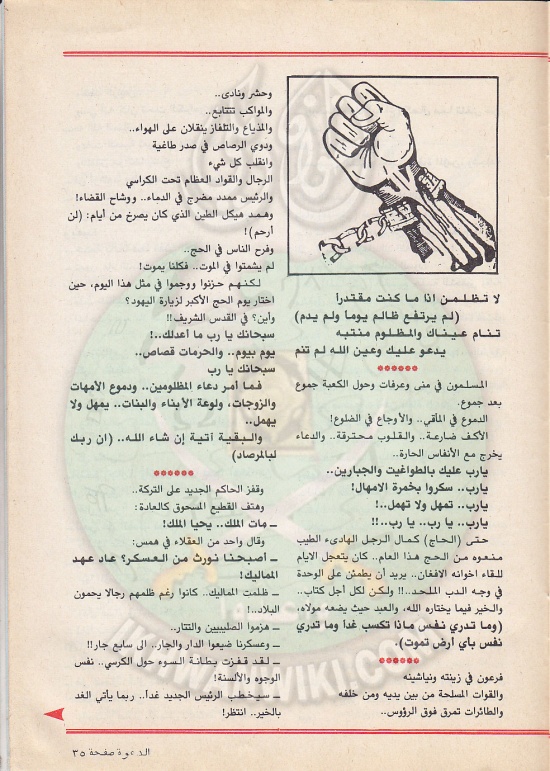 لا تظلمن اذا ما كنت مقتدرا
(لم يرتفع ظالم يوماً ولم يدم)
تنام عيناك والمظلوم منتبه
يدعو عليك وعين الله لم تنم
******
المسلمون في منى وعرفات وحول الكعبة جموع
بعد جموع.
الدموع في المآقي.. والأوجاع في الضلوع!
الأكف ضارعة.. والقلوب محترقة.. والدعاء
يخرج مع الأنفاس الحارة..
يارب عليك بالطواغيت والجبارين..
يارب.. سكروا بخمرة الامهال!
يارب.. تمهل ولا تهمل!
يارب.. يا رب.. يا رب..!!
حتى (الحاج) كمال الرجل الهادىء الطيب
منعوه من الحج هذا العام.. كان يتعجل الايام
للقاء اخوانه الافغان.. يريد أن يطمئن على الوحدة
في وجه الدب الملحد..!! ولكن لكل أجل كتاب..
والخير فيما يختاره الله، والعبد حيث يضعه مولاه،
(وما تدري نفس ماذا تكسب غداً وما تدري
نفس بأي أرض تموت).
******
فرعون في زينته ونياشينه
والقوات المسلحة من بين يديه ومن خلفه
والطائرات تمرق فوق الرؤوس..
وحشر ونادى..
والمواكب تتتابع..
والمذياع والتلفاز ينقلان على الهواء..
ودوي الرصاص في صدر طاغية
وانقلب كل شيء
الرجال والقواد العظام تحت الكراسي
والرئيس ممدد مضرج في الدماء.. ووشاح القضاء!
وهمد هيكل الطين الذي كان يصرخ من أيام: (لن
أرحم)!
وفرح الناس في الحج..
لم يشمتوا في الموت.. فكلنا يموت!
لكنهم حزنوا ووجموا في مثل هذا اليوم، حين
اختار يوم الحج الأكبر لزيارة اليهود؟
وأين؟ في القدس الشريف!!
سبحانك يا رب ما أعدلك..!
يوم بيوم.. والحرمات قصاص..
سبحانك يا رب
فما أمر دعاء المظلومين.. ودموع الأمهات
والزوجات، ولوعة الأبناء والبنات.. يمهل ولا
يهمل..
والبقية آتية إن شاء الله.. (ان ربك
لبالمرصاد)
******
وقفز الحاكم الجديد على التركة..
وهتف القطيع المسحوق كالعادة:
ــ مات الملك.. يحيا الملك!
وقال واحد من العقلاء في همس:
ــ أصبحنا نورث من العسكر؟ عاد عهد
المماليك!
ــ ظلمت المماليك.. كانوا رغم ظلمهم رجالا يحمون
البلاد..!
ــ هزموا الصليبيين والتتار..
ــ وعسكرنا ضيعوا الدار والجار.. الى سابع جار!!
ــ لقد قفزت بطانة السوء حول الكرسي.. نفس
الوجوه والألسنة!
ــ سيخطب الرئيس الجديد غداً.. ربما يأتي الغد
بالخير.. انتظر!
الدعوة صفحة ٣٥